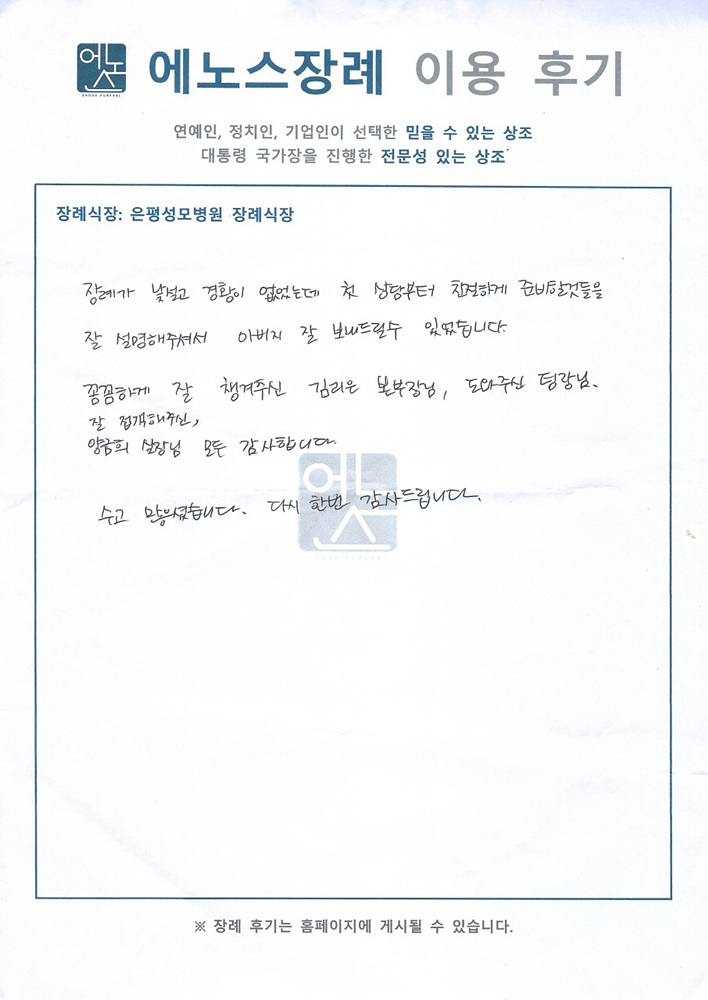 에노스
ENOSH FUNERAL
에노스장례 이용 후기
연예인, 정치인, 기업인이 선택한 믿을 수 있는 상조
대통령 국가장을 진행한 전문성 있는 상조
장례식장: 은평성모병원 장례식장
장례가 낯설고 경황이 없었는데 첫 상담부터 친절하게 준비할것들을
잘 설명해주셔서 아버지 잘 보내드릴수 있었습니다.
꼼꼼하게 잘 챙겨주신 김리은 본부장님, 도와주신 팀장님.
잘 접객해주신,
양금희 실장님 모든 감사합니다.
수고 많으셨습니다. 다시 한번 감사드립니다.
에노스
※ 장례 후기는 홈페이지에 게시될 수 있습니다.